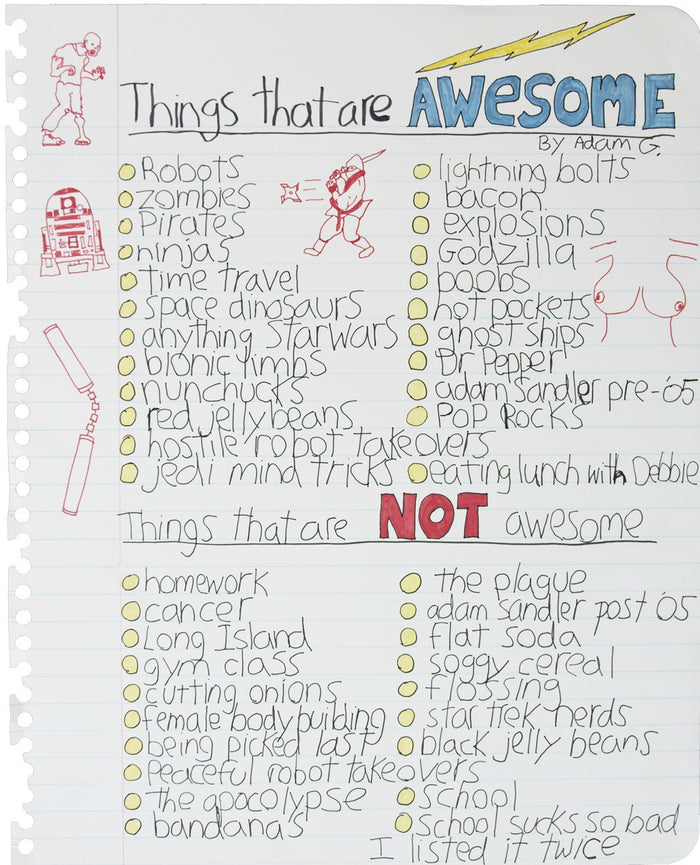 Things that are AWESOME
By Adam G.
Robots
zombies
Pirates
ninjas
time travel
space dinosaurs
anything starwars
bionic limbs
nunchucks
red jellybeans
hostile robot takeovers
jedi mind tricks
lightning bolts
bacon
explosions
Godzilla
boobs
hot pockets
ghost ships
Dr Pepper
adam sandler pre-'05
Pop Rocks
eating lunch with Debbie
Things that are NOT awesome
homework
cancer
Long Island
gym class
cutting onions
female body building
being picked last
peaceful robot takeovers
the apocolypse
bandana's
the plague
adam sandler post '05
flat soda
soggy cereal
flossing
star trek nerds
black jelly beans
school
school sucks so bad
I listed it twice